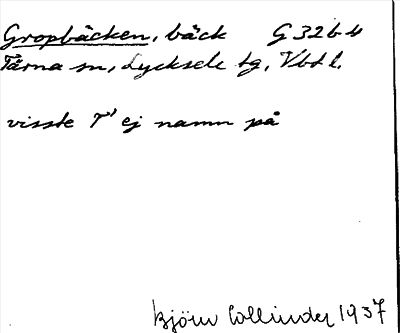 Gropbäcken, bäck G 32 b 4
Tärna sn, Lycksele tg, Vbtl.
visste T" ej namn på
Björn Collinder 1937